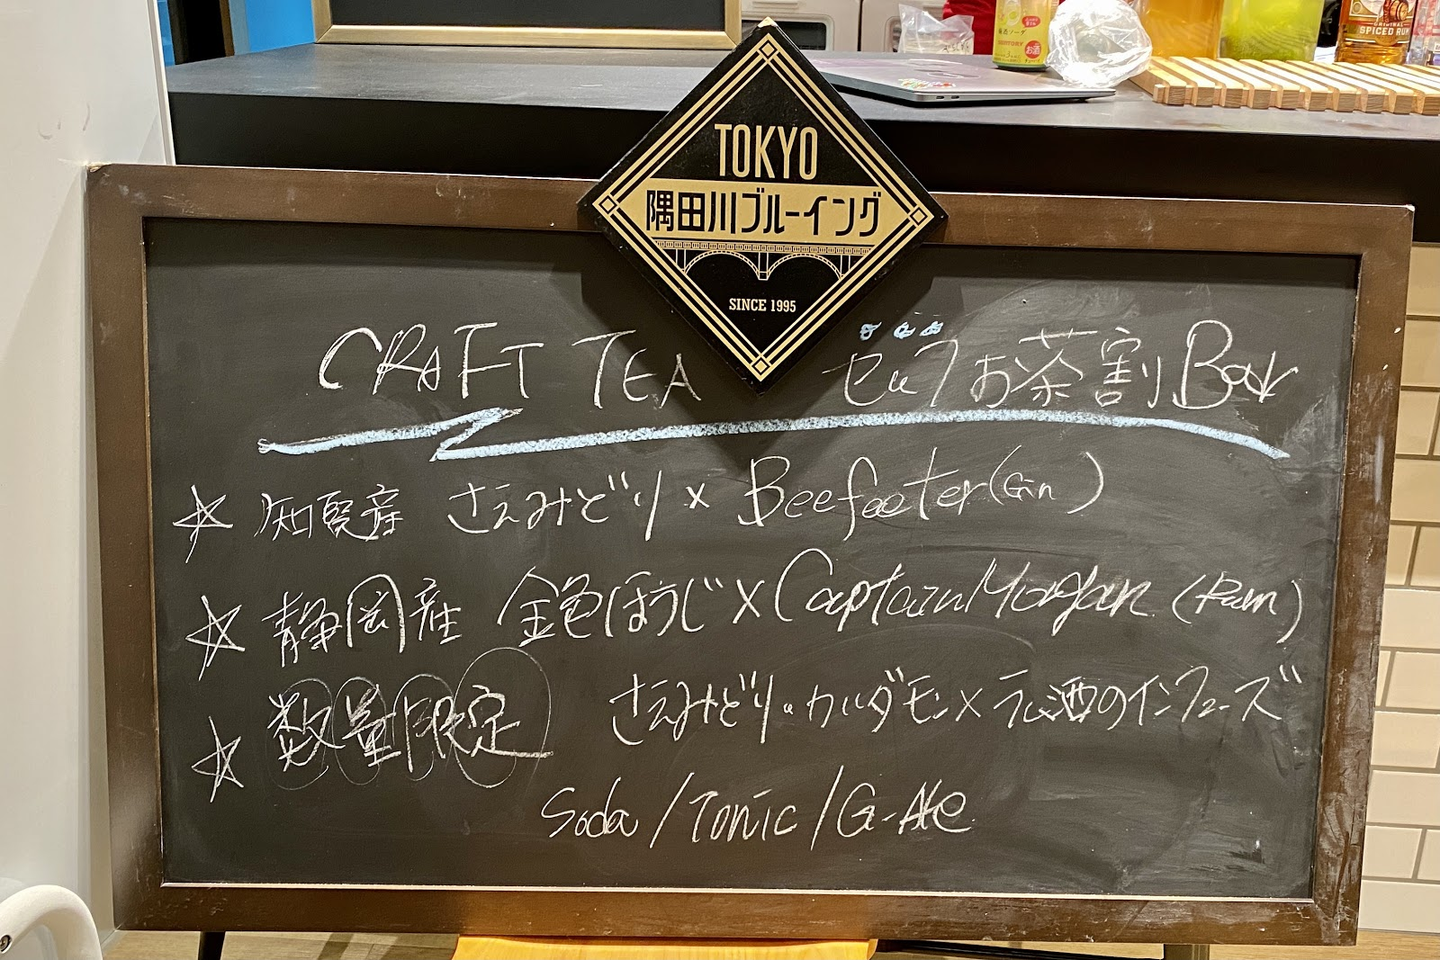 SUNTORY
お酒
ORIGINAL
SPICED RUM
TOKYO
隅田川ブルーイング
SINCE 1995
CRAFT TEA セルフお茶割Bar
☆ 知覧産 さえみどり × Beefeeter (Gin)
☆ 静岡産 金色ほうじ × Captain Morgan (Rum)
☆ 数量限定 さえみどり・カルダモン × ラム酒のインフューズ
Soda / Tonic / G-Ale